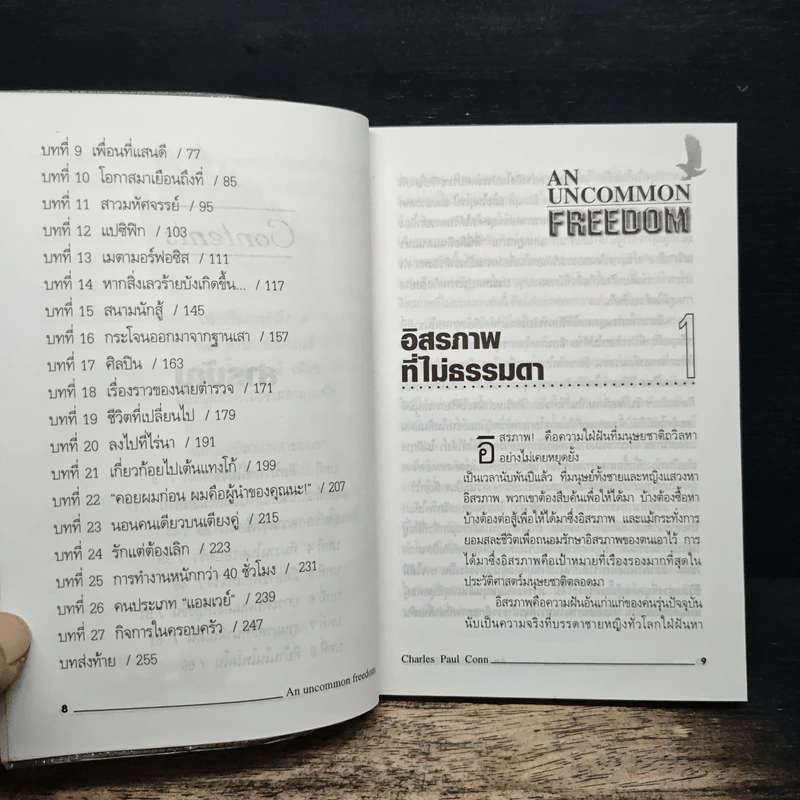 บทที่ 9 เพื่อนที่แสนดี / 77
บทที่ 10 โอกาสมาเยือนถึงที่ / 85
บทที่ 11 สาวมหัศจรรย์ / 95
บทที่ 12 แปซิฟิก / 103
บทที่ 13 เมตามอร์ฟอซิส / 111
บทที่ 14 หากสิ่งเลวร้ายบังเกิดขึ้น... / 117
บทที่ 15 สนามนักสู้ / 145
บทที่ 16 กระโจนออกมาจากฐานเสา / 157
บทที่ 17 ศิลปิน / 163
บทที่ 18 เรื่องราวของนายตำรวจ / 171
บทที่ 19 ชีวิตที่เปลี่ยนไป / 179
บทที่ 20 ลงไปที่ไร่นา / 191
บทที่ 21 เกี่ยวก้อยไปเต้นแทงโก้ / 199
บทที่ 22 "คอยผมก่อน ผมคือผู้นำของคุณนะ!" / 207
บทที่ 23 นอนคนเดียวบนเตียงคู่ / 215
บทที่ 24 รักแต่ต้องเลิก / 223
บทที่ 25 การทำงานหนักกว่า 40 ชั่วโมง / 231
บทที่ 26 คนประเภท "แอมเวย์" / 239
บทที่ 27 กิจการในครอบครัว / 247
บทส่งท้าย / 255
8 An uncommon freedom
AN
UNCOMMON
FREEDOM
อิสรภาพ
ที่ไม่ธรรมดา
1
อิสรภาพ! คือความใฝ่ฝันที่มนุษยชาติถวิลหา
อย่างไม่เคยหยุดยั้ง
เป็นเวลานับพันปีแล้ว ที่มนุษย์ทั้งชายและหญิงแสวงหา
อิสรภาพ พวกเขาต้องสืบค้นเพื่อให้ได้มา บ้างต้องซื้อหา
บ้างต้องต่อสู้เพื่อให้ได้มาซึ่งอิสรภาพ และแม้กระทั่งการ
ยอมสละชีวิตเพื่อถนอมรักษาอิสรภาพของตนเอาไว้ การ
ได้มาซึ่งอิสรภาพคือเป้าหมายที่เรืองรองมากที่สุดใน
ประวัติศาสตร์มนุษยชาติตลอดมา
อิสรภาพคือความฝันอันเก่าแก่ของคนรุ่นปัจจุบัน
นับเป็นความจริงที่บรรดาชายหญิงทั่วโลกใฝ่ฝันหา
Charles Paul Conn 9